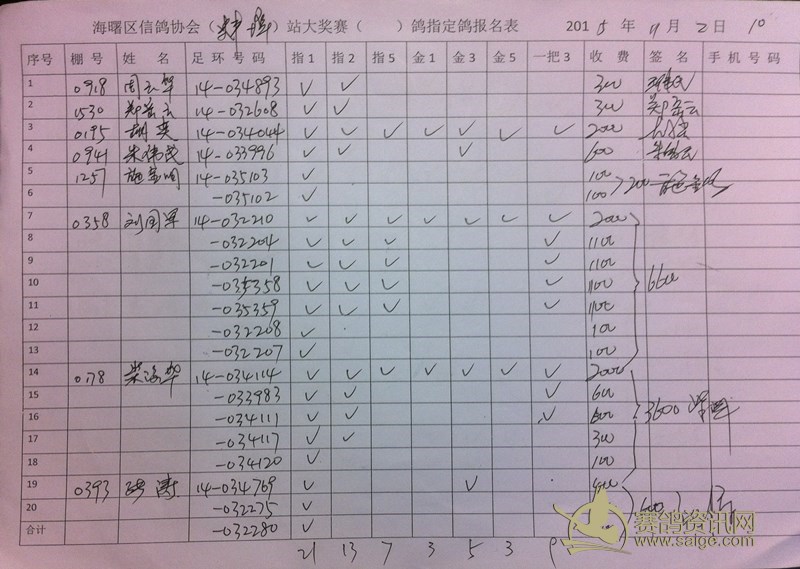 海曙区信鸽协会（ ）站大奖赛（ ）鸽指定鸽报名表 2015 年 11 月 2 日 10
序号 棚号 姓 名 足 环 号 码 指1 指2 指5 金1 金3 金5 一把3 收 费 签 名 手 机 号 码
1 0918 14-034893 ✓ ✓ 300
2 1530 郑岳云 14-032608 ✓ ✓ 300 郑岳云
3 0195 胡英 14-034044 ✓ ✓ ✓ ✓ ✓ ✓ ✓ 2000
4 0941 朱伟民 14-033996 ✓ ✓ ✓ 600
5 1257 14-035103 ✓ 100
6 -035102 ✓ 100 200
7 0358 刘国军 14-032210 ✓ ✓ ✓ ✓ ✓ ✓ ✓ 2000
8 -032204 ✓ ✓ ✓ ✓ 1100
9 -032201 ✓ ✓ ✓ ✓ 1100
10 -035358 ✓ ✓ ✓ ✓ 1100 6600
11 -035359 ✓ ✓ ✓ ✓ 1100
12 -032208 ✓ 100
13 -032207 ✓ 100
14 0178 柴海华 14-034114 ✓ ✓ ✓ ✓ ✓ ✓ ✓ 2000
15 -033983 ✓ ✓ ✓ 600
16 -034111 ✓ ✓ ✓ 600 3600
17 -034117 ✓ ✓ 300
18 -034120 ✓ 100
19 0393 14-034769 ✓ ✓ 400
20 -032275 ✓ 600
合计 -032280 ✓
21 13 7 3 5 3 9
赛鸽资讯网
www.saige.com